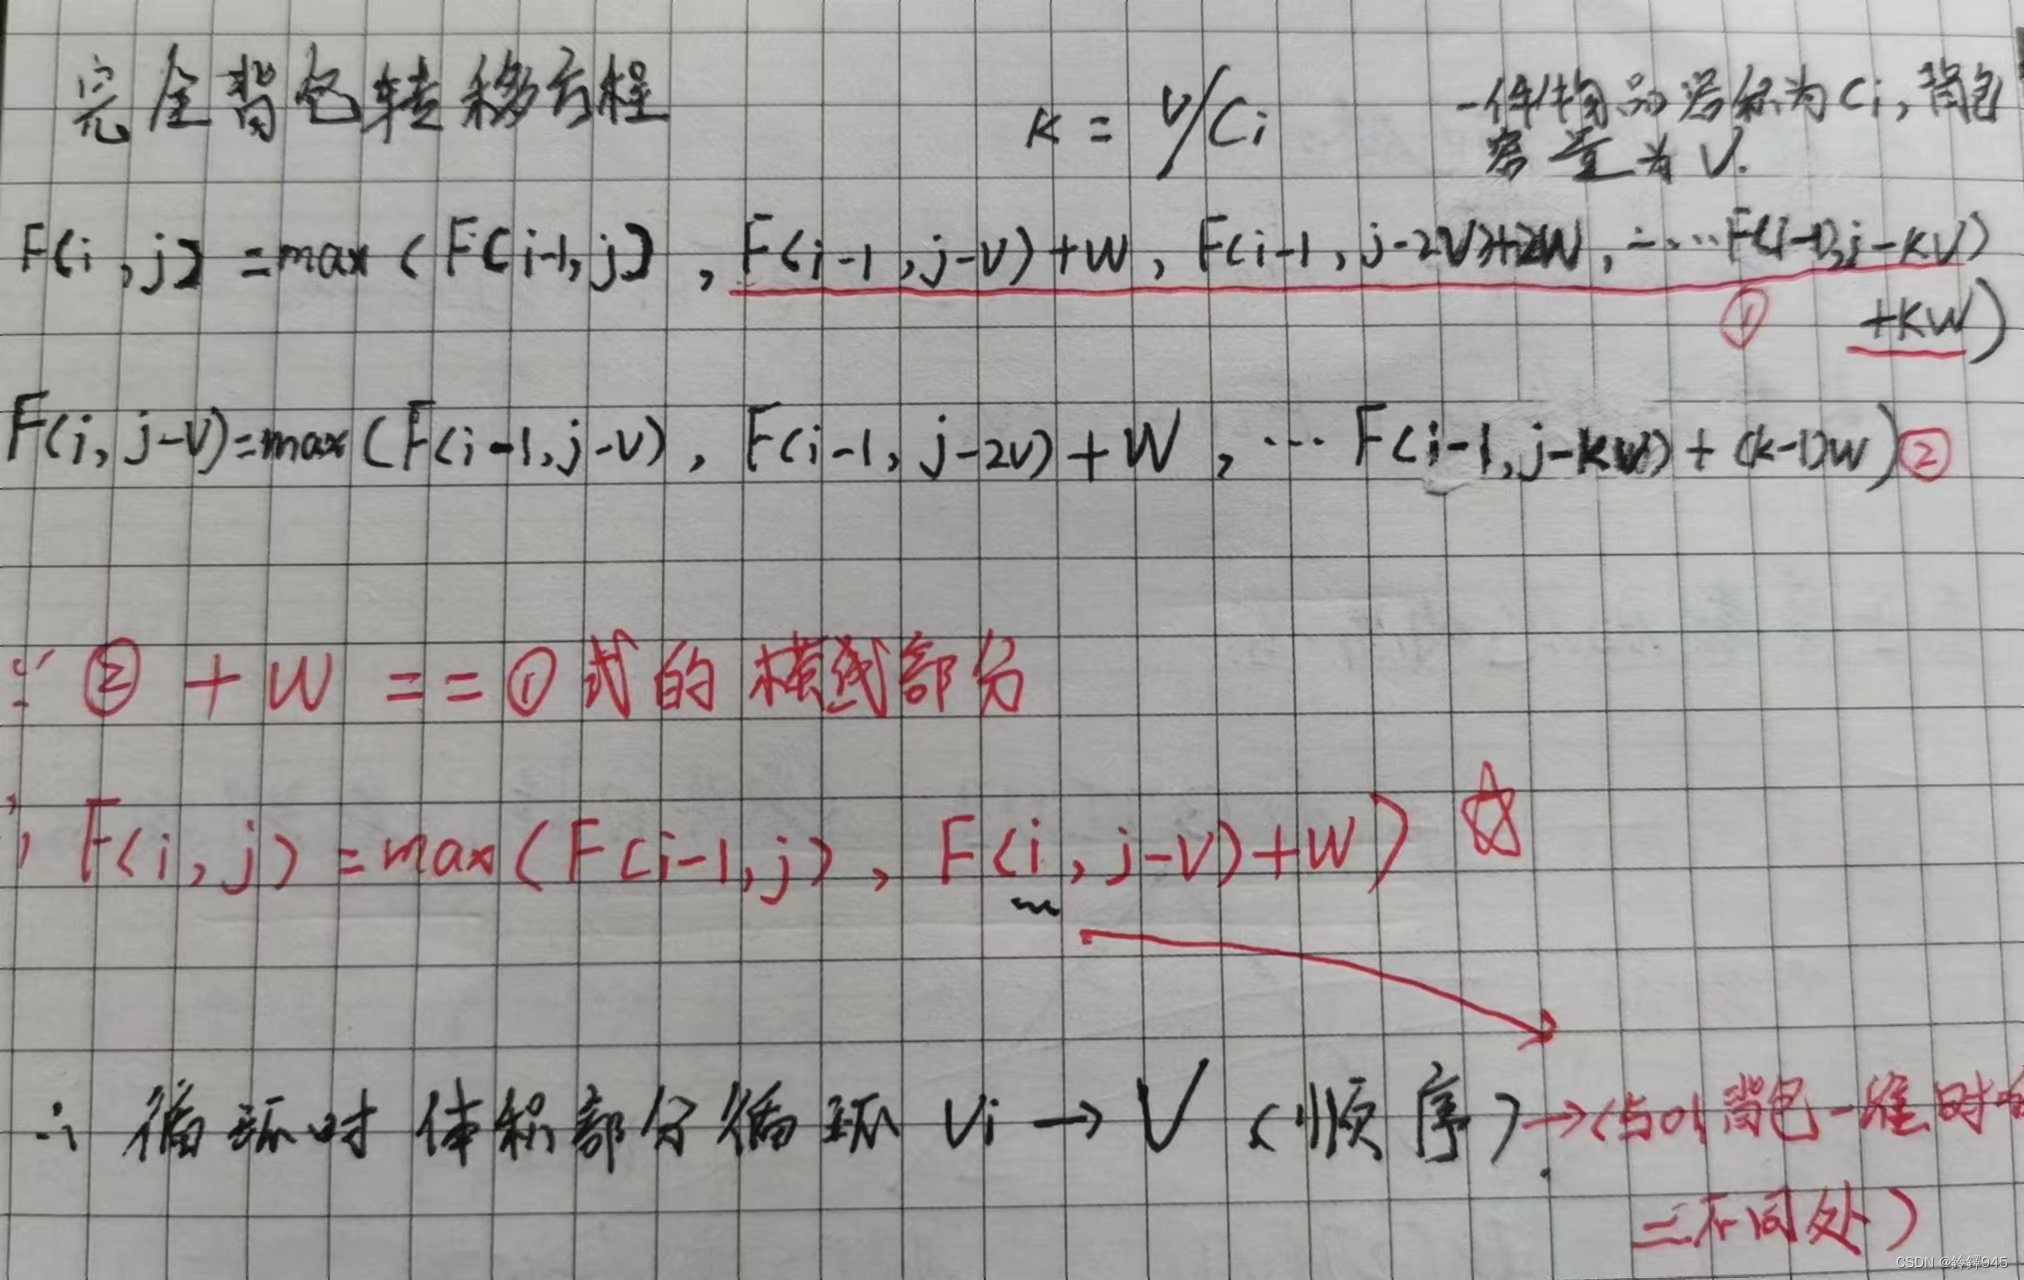 完全背包转移方程
K = V/Ci
一件物品容积为Ci,背包
容量为V.
F(i,j) =max (F(i-1,j), F(i-1,j-V)+W, F(i-1,j-2V)+2W, …… F(i-1,j-KV)
① +KW)
F(i,j-V)=max(F(i-1,j-V), F(i-1,j-2V)+W, … F(i-1,j-KV)+(k-1)W) ②
∵ ② + W == ①式的横线部分
F(i,j)=max(F(i-1,j), F(i,j-V)+W) ☆
∴ 循环时体积部分循环 Vi → V (顺序). →(与01背包一维时
二不同处)
CSDN @铃鐸945